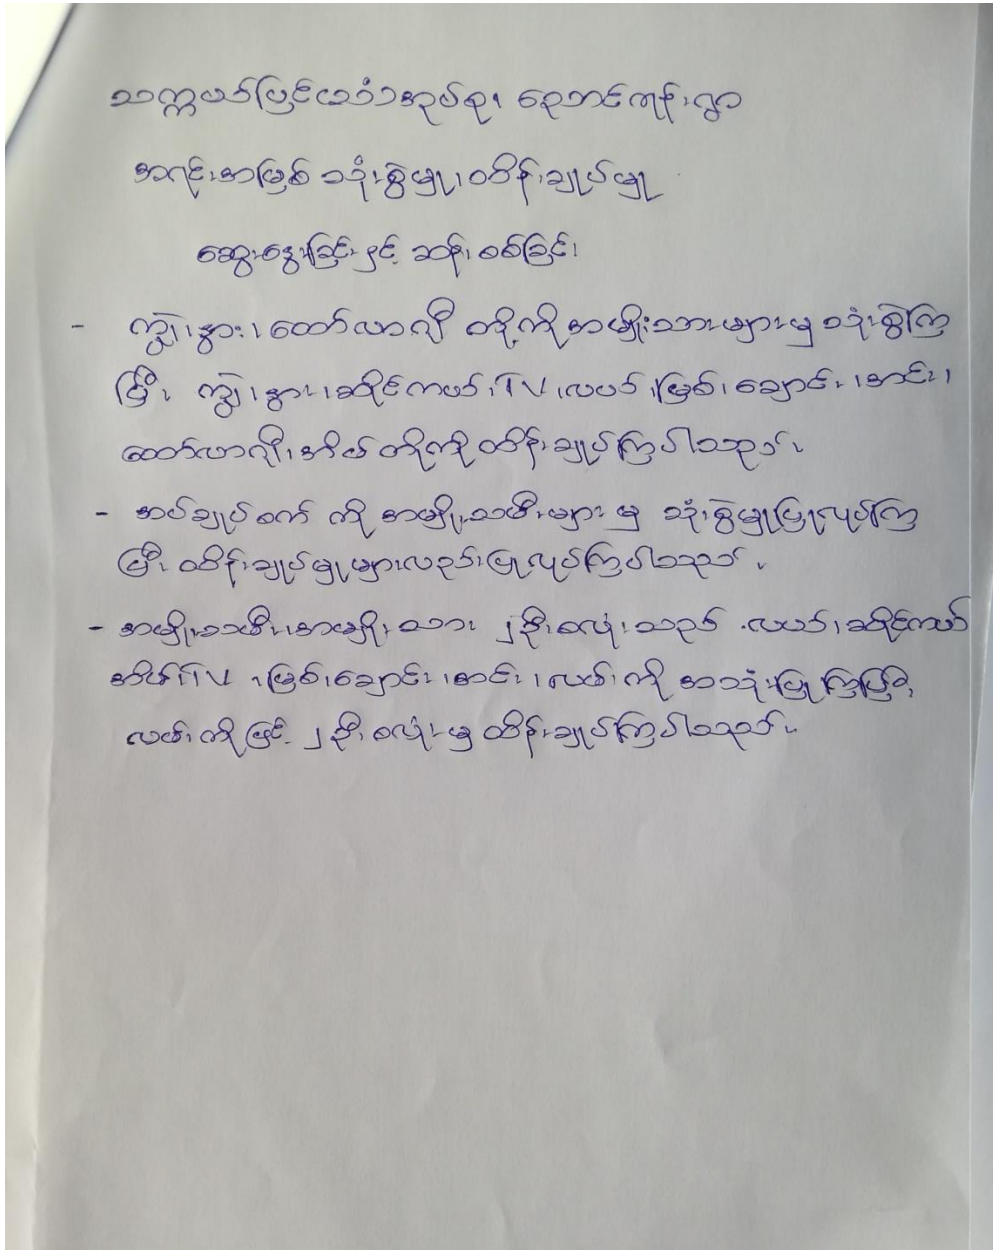 သက္ကယ်ပြင်ယာံအုပ်စု၊ ညောင်ကုန်းရွာ
အရင်းအမြစ် သုံးစွဲမှု၊ ထိန်းချုပ်မှု
ဆွေးနွေးခြင်းနှင့် ဆန်းစစ်ခြင်း
- ကျွဲ၊ နွား၊ ထော်လာဂျီ တို့ကို အမျိုးသားများမှ သုံးစွဲကြ
ပြီး ကျွဲ၊ နွား၊ ဆိုင်ကယ်၊ TV ၊ လယ်၊ မြစ်၊ ချောင်း၊ အင်း၊
ထော်လာဂျီ၊ အိမ် တို့ကို ထိန်းချုပ်ကြပါသည်။
- အပ်ချုပ်စက် ကို အမျိုးသမီးများ မှ သုံးစွဲမှုပြုလုပ်ကြ
ပြီး ထိန်းချုပ်မှုများလည်းပြုလုပ်ကြပါသည်။
- အမျိုးသမီး၊ အမျိုးသား ၂ ဦးစလုံးသည် လယ်၊ ဆိုင်ကယ်
အိမ်၊ TV ၊ မြစ်၊ ချောင်း၊ အင်း၊ လမ်းကို အသုံးပြုကြပြီး
လမ်းကိုဖြင့် ၂ ဦးစလုံးမှ ထိန်းချုပ်ကြပါသည်။